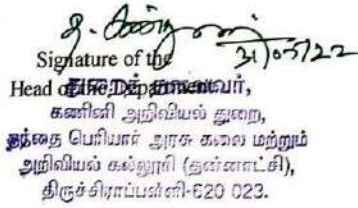 31/05/22
Signature of the
Head of the Department
துறைத் தலைவர்,
கணினி அறிவியல் துறை,
தந்தை பெரியார் அரசு கலை மற்றும்
அறிவியல் கல்லூரி (தன்னாட்சி),
திருச்சிராப்பள்ளி-620 023.